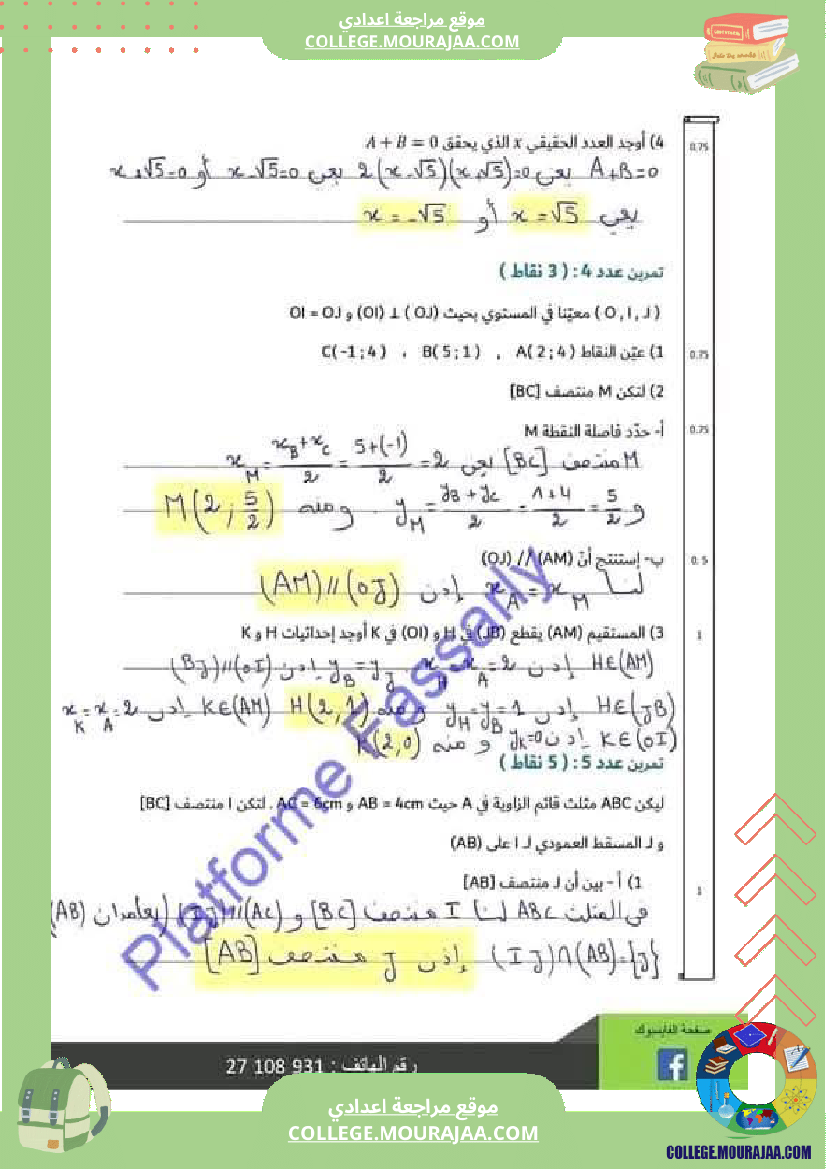 موقع مراجعة اعدادي
COLLEGE.MOURAJAA.COM
4) أوجد العدد الحقيقي x الذي يحقق A + B = 0
0.75
A+B=0 يعني 2(x-√5)(x+√5)=0 يعني x-√5=0 أو x+√5=0
يعني x=√5 أو x=-√5
تمرين عدد 4 : ( 3 نقاط )
( O , I , J ) معيّنا في المستوي بحيث (OI) ⊥ (OJ) و OI = OJ
1) عيّن النقاط A( 2 ; 4 ) , B( 5 ; 1 ) , C( -1 ; 4 )
0.75
2) لتكن M منتصف [BC]
أ- حدّد فاصلة النقطة M
0.75
M منتصف [BC] يعني x_M = (x_B+x_C)/2 = (5+(-1))/2 = 2
و y_M = (y_B+y_C)/2 = (1+4)/2 = 5/2 ومنه M(2 ; 5/2)
ب- إستنتج أنّ (AM) // (OJ)
0.5
لنا x_A = x_M إذن (AM)//(OJ)
3) المستقيم (AM) يقطع (JB) في H و (OI) في K أوجد إحداثيات H و K
1
H∈(AM) إذن x_H = x_A = 2 y_B = y_J إذن (BJ)//(OI)
H∈(JB) إذن y_H = y_B = 1 ومنه H(2,1) K∈(AM) إذن x_K = x_A = 2
K∈(OI) إذن y_K=0 ومنه K(2,0)
تمرين عدد 5 : ( 5 نقاط )
ليكن ABC مثلث قائم الزاوية في A حيث AB = 4cm و AC = 6cm . لتكن I منتصف [BC]
و J المسقط العمودي لـ I على (AB)
1) أ - بين أن J منتصف [AB]
1
في المثلث ABC لنا I منتصف [BC] و (IJ)//(AC) (يعامدان (AB)
(IJ)∩(AB)={J} إذن J منتصف [AB]
Platforme Fassarly
صفحة الفايسبوك
رقم الهاتف : 27 108 931
موقع مراجعة اعدادي
COLLEGE.MOURAJAA.COM
COLLEGE.MOURAJAA.COM